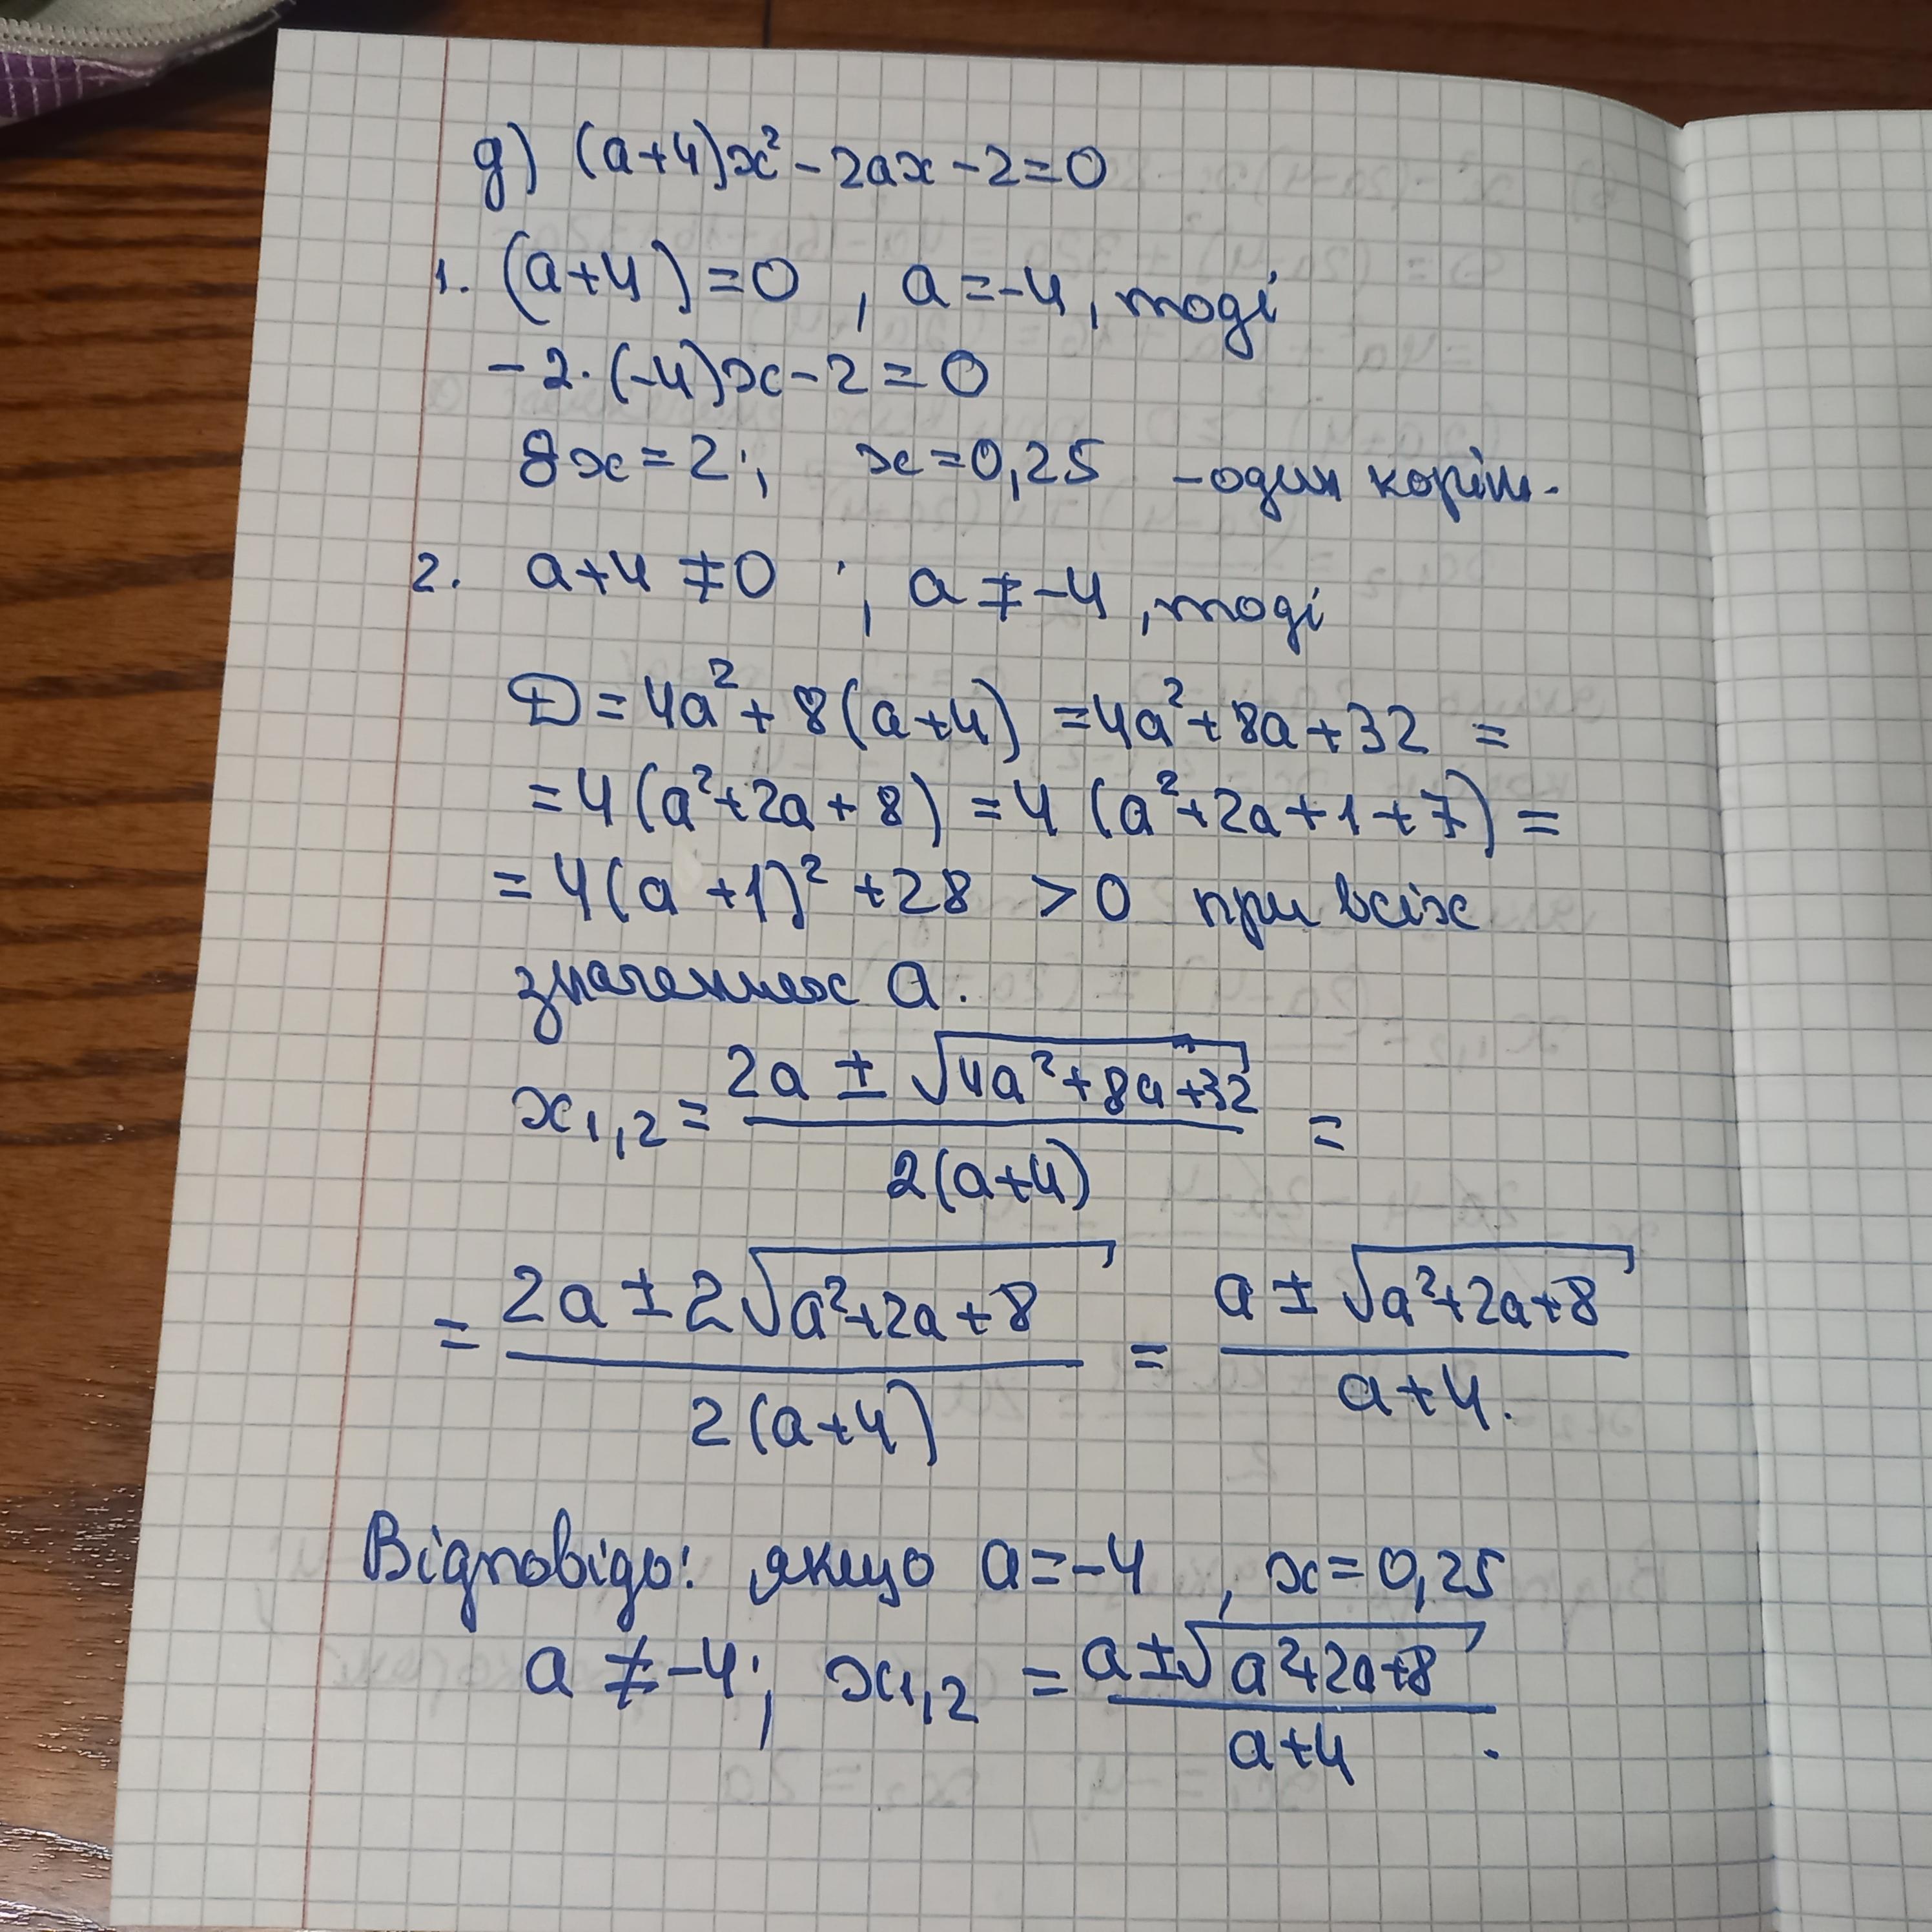 д) (a+4)x² - 2ax - 2 = 0
1. (a+4) = 0 , a = -4, тоді
- 2·(-4)x - 2 = 0
8x = 2 ; x = 0,25 - один корінь.
2. a+4 ≠ 0 ; a ≠ -4, тоді
D = 4a² + 8(a+4) = 4a² + 8a + 32 =
= 4(a² + 2a + 8) = 4(a² + 2a + 1 + 7) =
= 4(a+1)² + 28 > 0 при всіх
значеннях a.
x1,2 = (2a ± √(4a² + 8a + 32)) / (2(a+4)) =
= (2a ± 2√(a² + 2a + 8)) / (2(a+4)) = (a ± √(a² + 2a + 8)) / (a+4).
Відповідь: якщо a = -4 , x = 0,25
a ≠ -4; x1,2 = (a ± √(a² + 2a + 8)) / (a+4).